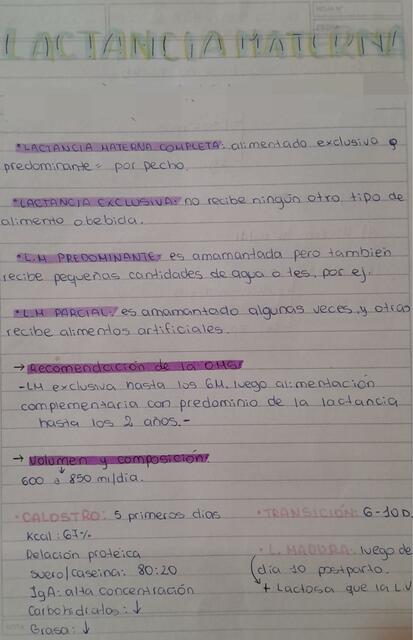 LACTANCIA MATERNA
• LACTANCIA MATERNA COMPLETA: alimentado exclusiva o
predominante = por pecho.
• LACTANCIA EXCLUSIVA: no recibe ningún otro tipo de
alimento o bebida.
• L.M PREDOMINANTE: es amamantada pero tambien
recibe pequeñas cantidades de agua o tes, por ej.
• LM PARCIAL: es amamantado algunas veces, y otras
recibe alimentos artificiales.
→ Recomendación de la OMS:
- LM exclusiva hasta los 6M, luego alimentación
complementaria con predominio de la lactancia
hasta los 2 años.-
→ Volumen y composición:
600 a 850 ml/dia.
• CALOSTRO: 5 primeros dias
• TRANSICIÓN: 6-10D.
Kcal: 67%
Relación proteica
suero/caseina: 80:20
IgA: alta concentración
Carbohidratos: ↓
Grasa: ↓
• L. MADURA: luego de
dia 10 postparto.
+ Lactosa que la L.V